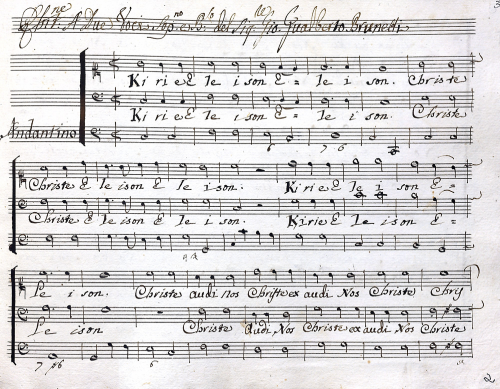 A Due Voci. Sop.no e B.so del Sig.re Gio. Gualberto Brunetti
Ki ri e E le i son E = le i son. Christe
Ki ri e E le i son E = le i son. Christe
Andantino
7 6
Christe E le ison E le i son. Ki rie E le i son E =
Christe E le ison E le i son. Ki rie E le i son E =
le i son. Christe audi nos Christe ex audi Nos Christe Chry
le i son Christe Audi Nos Christe ex audi Nos Christe
7 #6 6
2